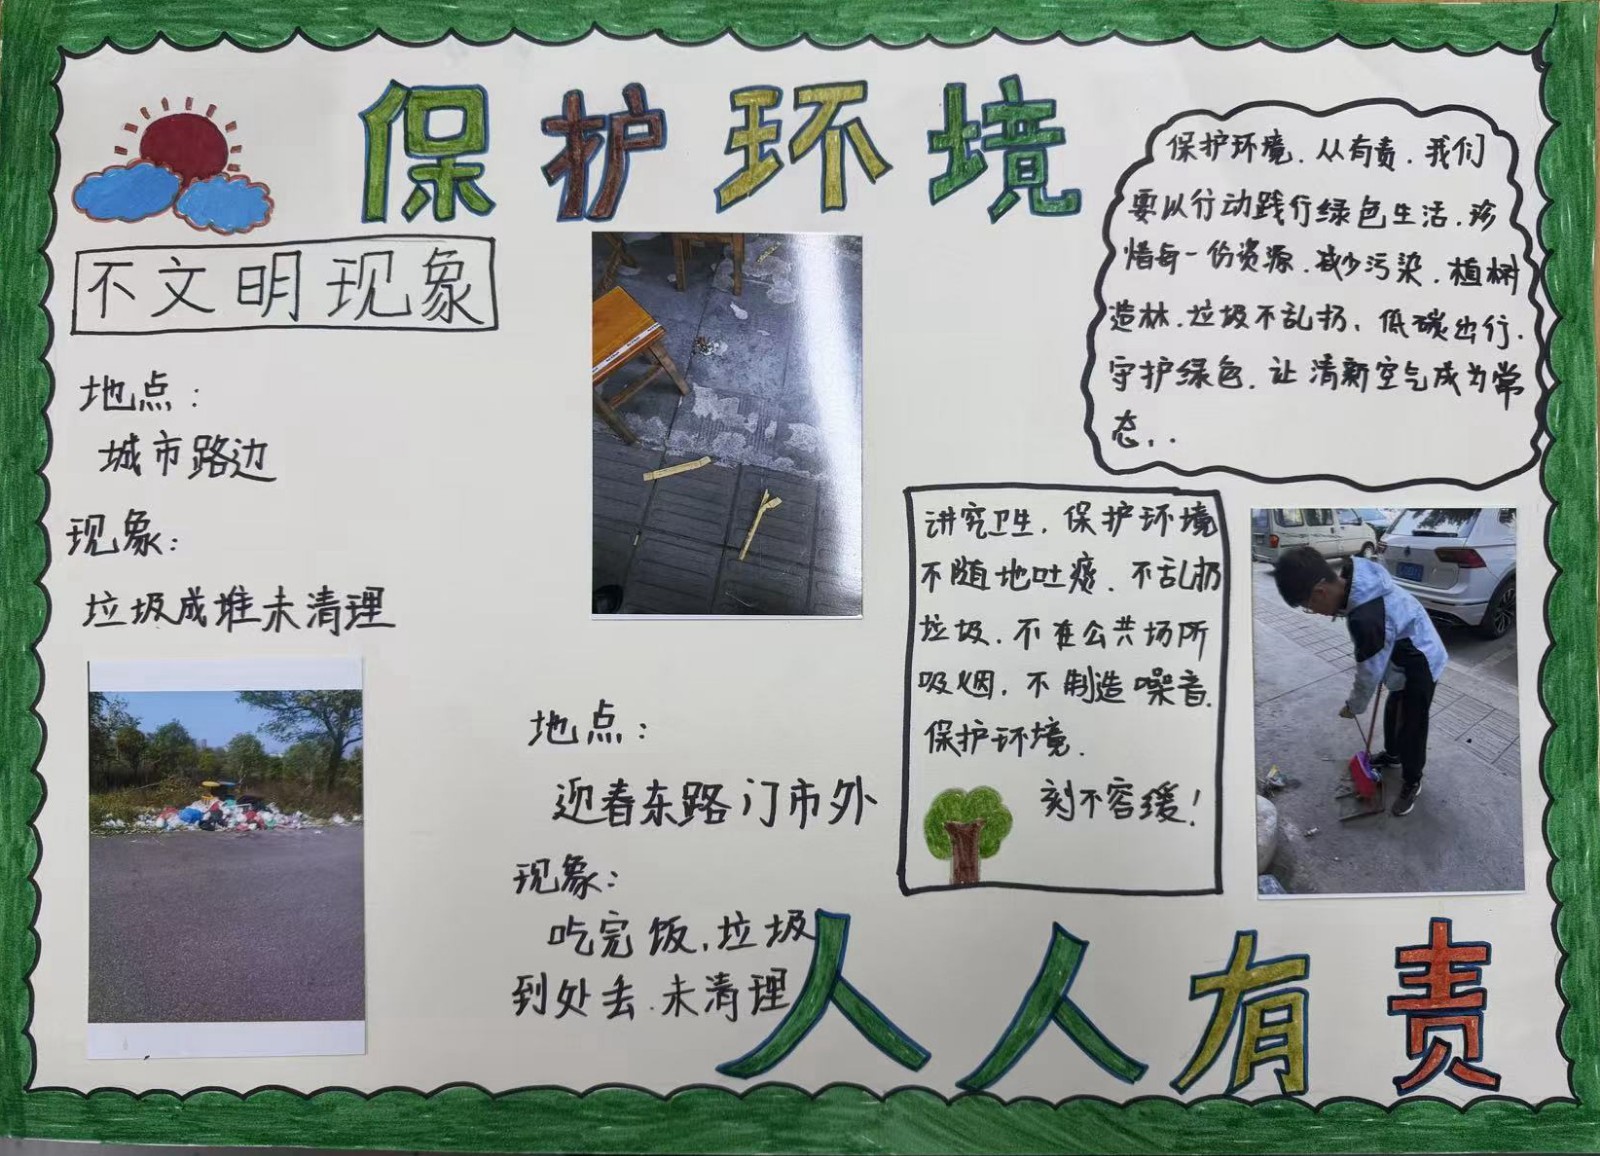 保护环境
不文明现象
地点：
城市路边
现象：
垃圾成堆未清理
地点：
迎春东路门市外
现象：
吃完饭，垃圾
到处丢．未清理
保护环境．从有责．我们
要从行动践行绿色生活．珍
惜每一份资源．减少污染．植树
造林．垃圾不乱扔、低碳出行．
守护绿色．让清新空气成为常
态．．
讲究卫生．保护环境
不随地吐痰．不乱扔
垃圾．不在公共场所
吸烟．不制造噪音．
保护环境．
刻不容缓！
人人有责